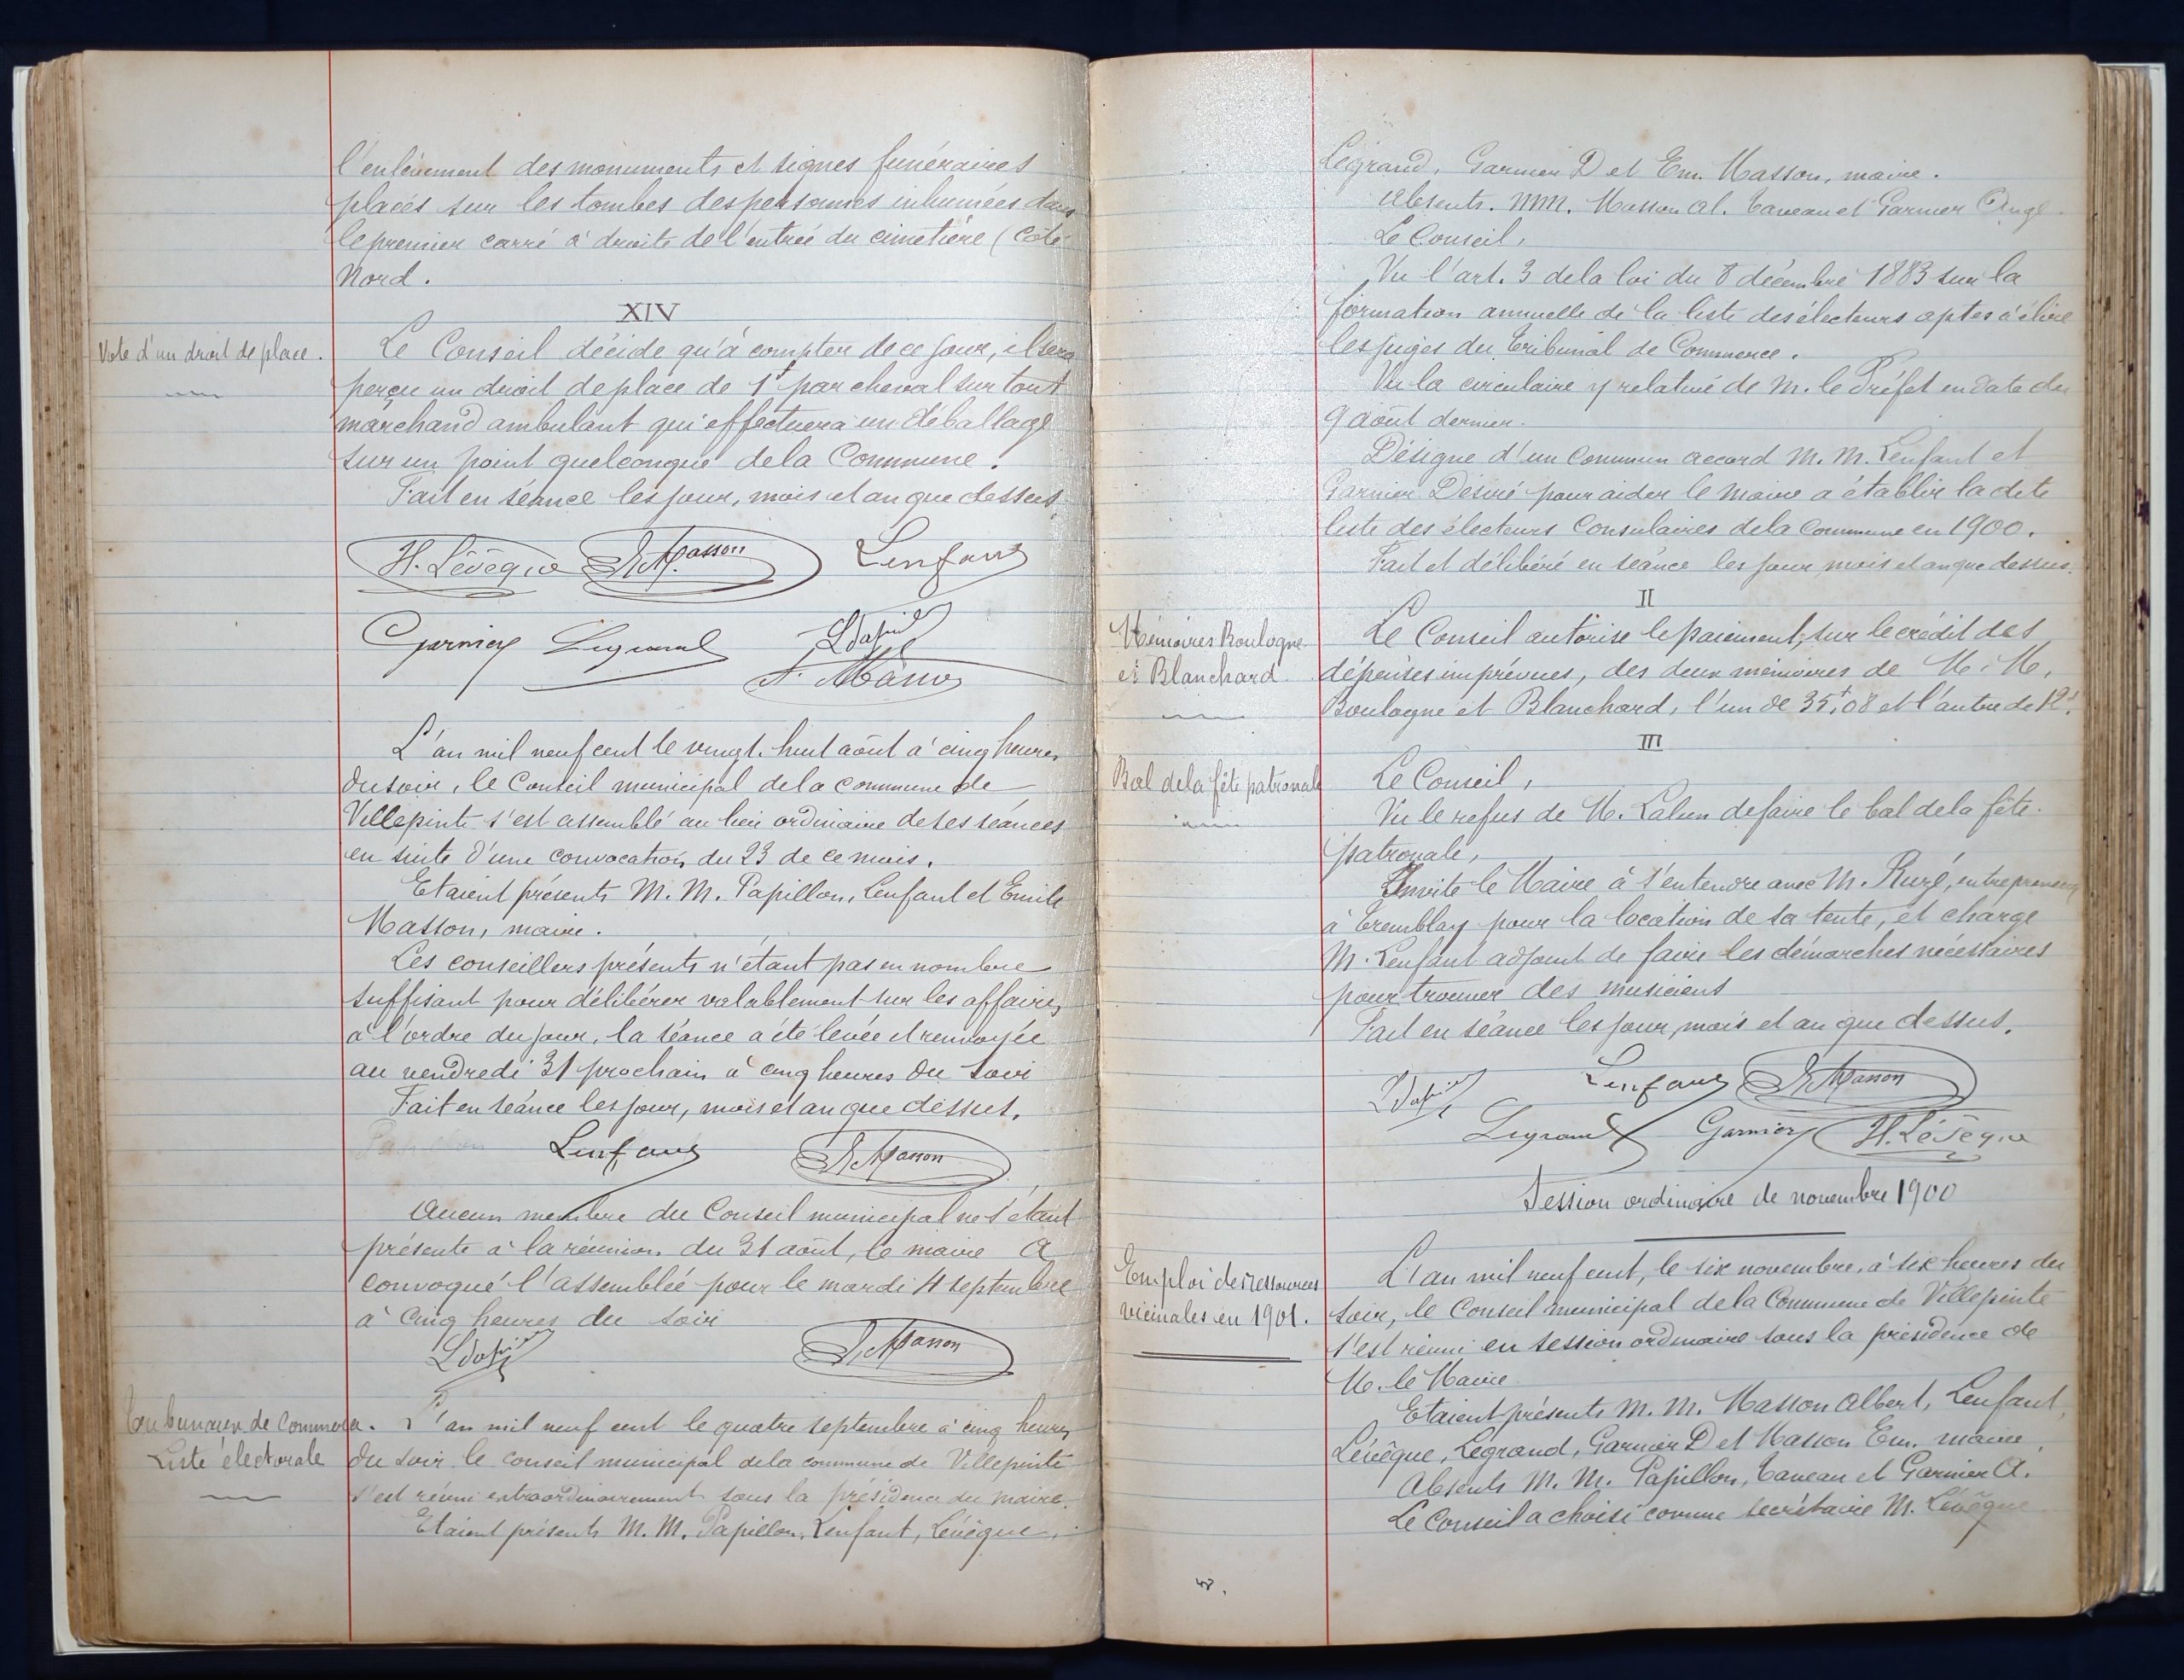 l'enlèvement des monuments et signes funéraires
placés sur les tombes des personnes inhumées dans
le premier carré à droite de l'entrée du cimetière (Côté
Nord.
XIV
Vote d'un droit de place.
Le Conseil décide qu'à compter de ce jour, il sera
perçu un droit de place de 1f par cheval sur tout
marchand ambulant qui effectuera un déballage
sur un point quelconque de la Commune.
Fait en séance les jour, mois et an que dessus.
H. Lévêque E. Masson Lenfant
Garnier Legrand
A. Masson
L'an mil neuf cent le vingt-huit août à cinq heures
du soir, le Conseil municipal de la commune de
Villepinte s'est assemblé au lieu ordinaire de ses séances
en suite d'une convocation du 23 de ce mois.
Etaient présents M. M. Papillon, Lenfant et Emile
Masson, maire.
Les conseillers présents n'étant pas en nombre
suffisant pour délibérer valablement sur les affaires
à l'ordre du jour, la séance a été levée et renvoyée
au vendredi 31 prochain à cinq heures du soir
Fait en séance les jour, mois et an que dessus.
Papillon Lenfant E. Masson
Aucun membre du Conseil municipal ne s'étant
présenté à la réunion du 31 août, le maire a
convoqué l'assemblée pour le mardi 4 septembre
à cinq heures du soir
E. Masson
de Commerce.
Liste électorale
L'an mil neuf cent le quatre septembre à cinq heures
du soir le conseil municipal de la commune de Villepinte
s'est réuni extraordinairement sous la présidence du maire.
Etaient présents M. M. Papillon, Lenfant, Lévêque,
Legrand, Garnier D et Em. Masson, maire.
Absents. MM. Masson Al. Taveau et Garnier Ange
Le Conseil,
Vu l'art. 3 de la loi du 8 décembre 1883 sur la
formation annuelle de la liste des électeurs aptes à élire
les juges du Tribunal de Commerce.
Vu la circulaire y relative de M. le Préfet en date du
9 août dernier.
Désigne d'un commun accord M. M. Lenfant et
Garnier Desiré pour aider le maire a établir la dite
liste des électeurs Consulaires de la Commune en 1900.
Fait et délibéré en séance les jour mois et an que dessus.
II
Mémoires Boulogne
et Blanchard
Le Conseil autorise le paiement, sur le crédit des
dépenses imprévues, des deux mémoires de M. M.
Boulogne et Blanchard, l'un de 35f,08 et l'autre de 12f.
III
Bal de la fête patronale
Le Conseil,
Vu le refus de M. Lalun de faire le bal de la fête
patronale,
Invite le Maire à s'entendre avec M. Ruzé, entrepreneur
à Tremblay pour la location de sa tente, et charge
M. Lenfant adjoint de faire les démarches nécessaires
pour trouver des musiciens
Fait en séance les jour, mois et an que dessus.
Lenfant E. Masson
Legrand Garnier H. Lévêque
Session ordinaire de novembre 1900
Emploi des ressources
vicinales en 1901.
L'an mil neuf cent, le six novembre, à six heures du
soir, le Conseil municipal de la Commune de Villepinte
s'est réuni en session ordinaire sous la présidence de
M. le Maire
Etaient présents M. M. Masson Albert, Lenfant,
Lévêque, Legrand, Garnier D et Masson Em. maire.
Absents M. M. Papillon, Taveau et Garnier A.
Le Conseil a choisi comme secrétaire M. Lévêque